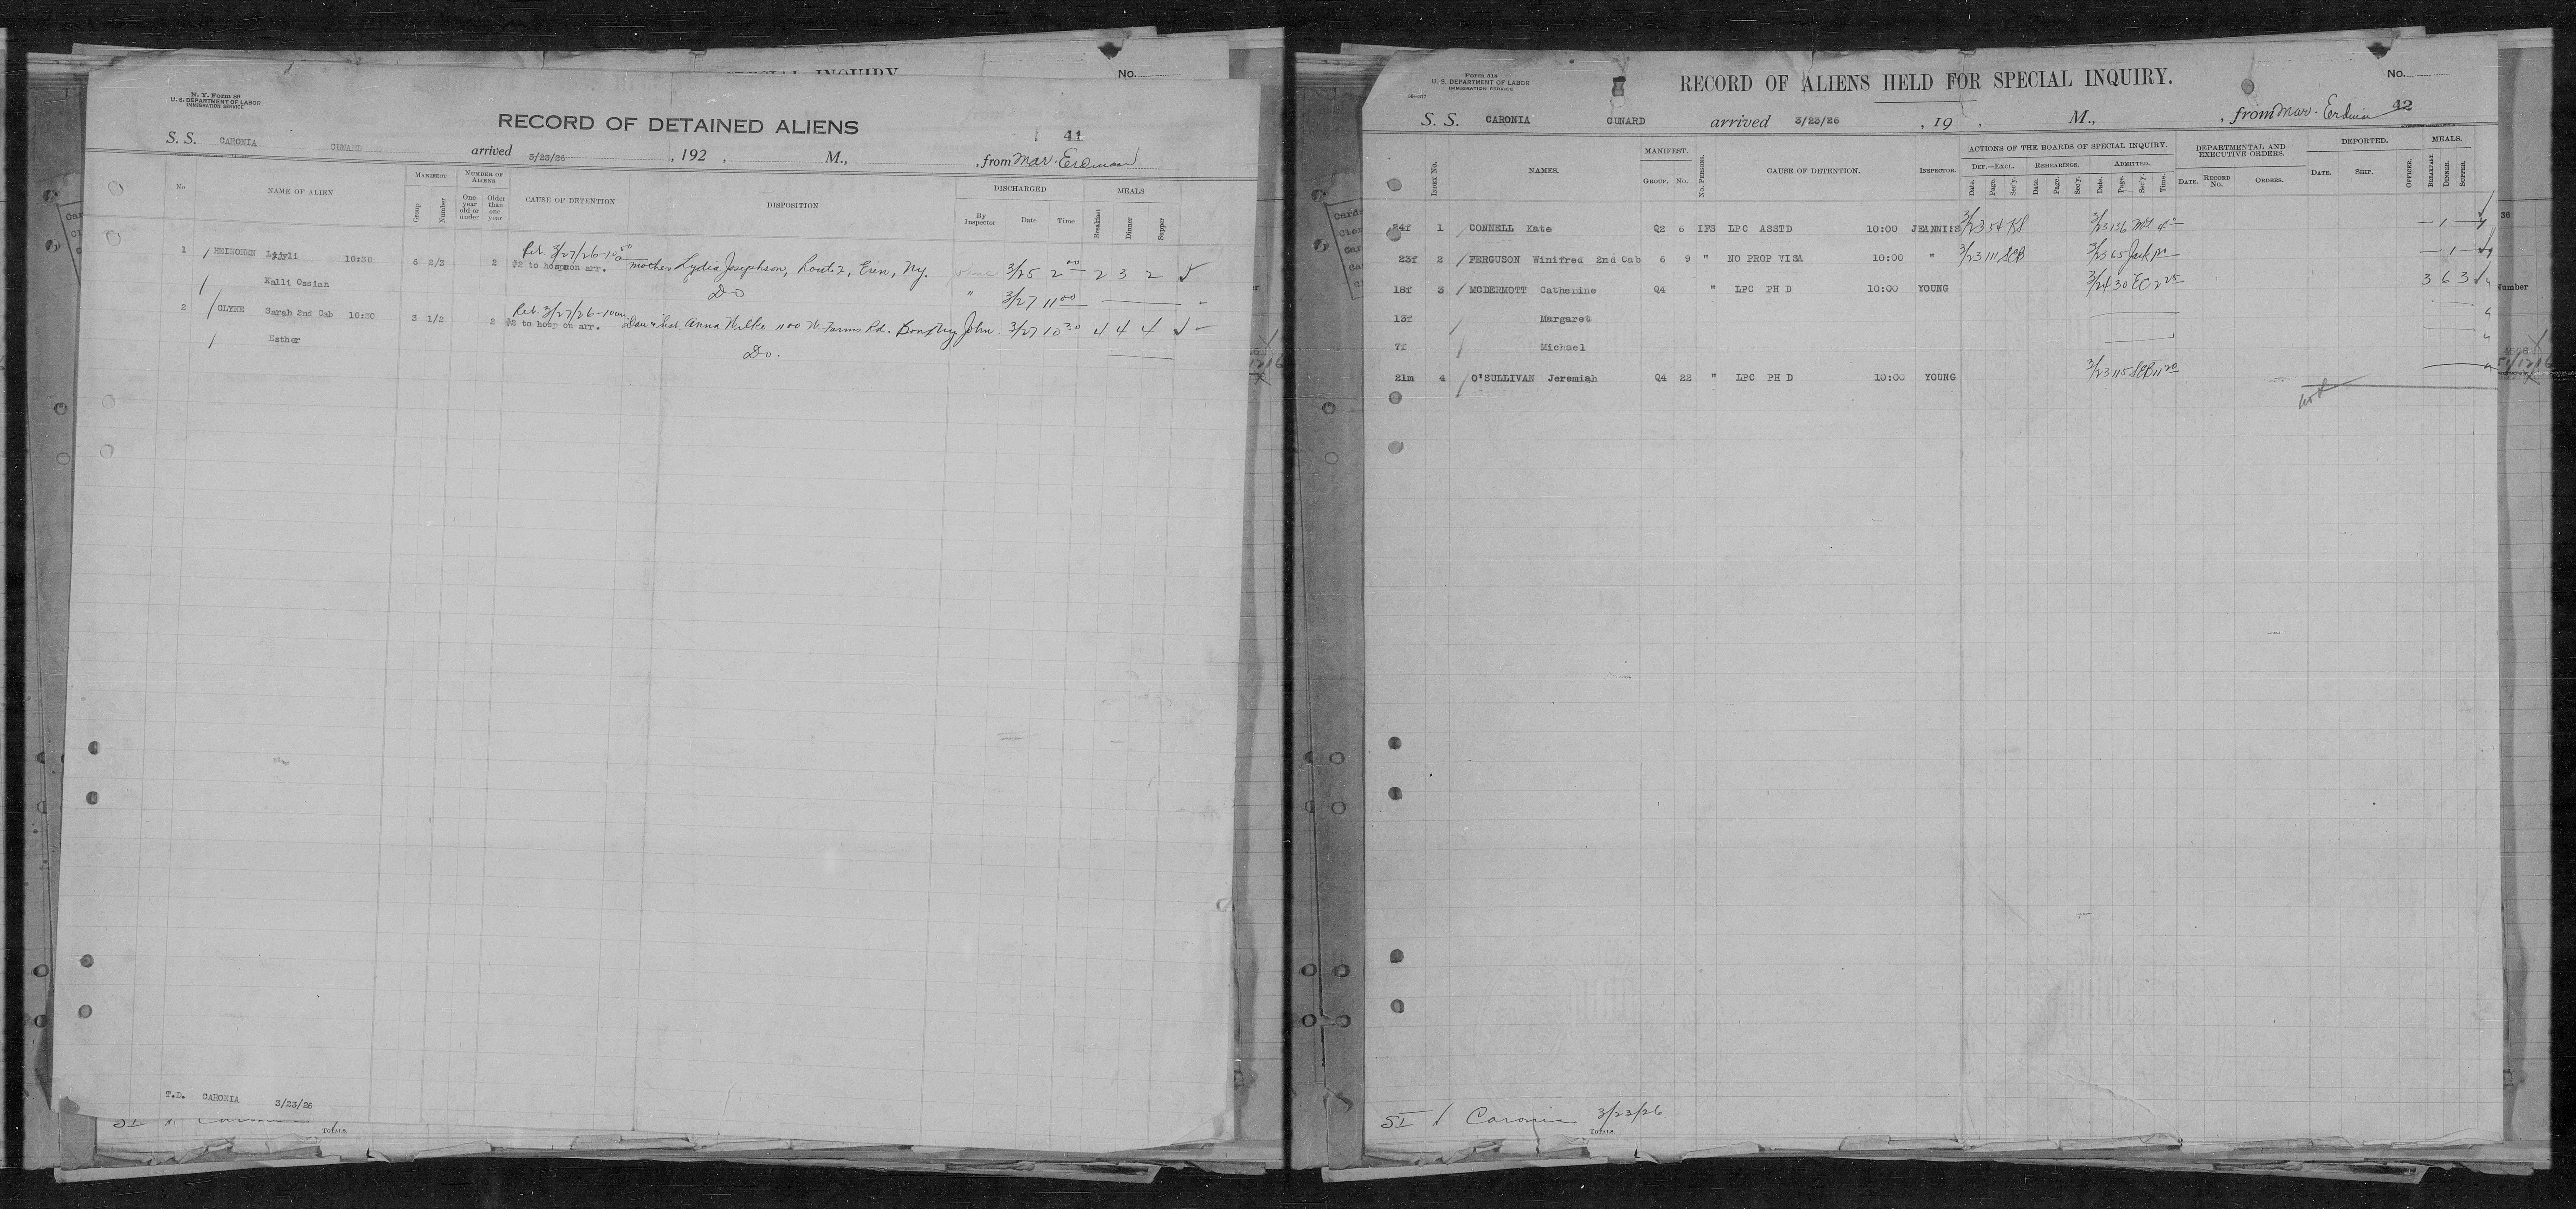 No.
N. Y. Form 99
U. S. DEPARTMENT OF LABOR
IMMIGRATION SERVICE
RECORD OF DETAINED ALIENS
41
S. S. CARONIA CUNARD arrived 3/23/26, 192 , M., , from Mar. Erdman
No. NAME OF ALIEN MANIFEST Group Number NUMBER OF ALIENS One year old or under Older than one year CAUSE OF DETENTION DISPOSITION DISCHARGED By Inspector Date Time MEALS Breakfast Dinner Supper
1 HEINONEN 10:30 6 2/3 2 #2 to hosp on arr. mother Lydia Josephson, Route 2, Erin, Ny. 3/25 2 00 2 3 2
Kalli Ossian Do " 3/27 11 00
2 CLYNE Sarah 2nd Cab 10:30 3 1/2 2 #2 to hosp on arr. Anna Wilke 1100 W. Farms Rd. John. 3/27 10 30 4 4 4
Esther Do.
T.D. CARONIA 3/23/26
TOTALS
Form 51a
U. S. DEPARTMENT OF LABOR
IMMIGRATION SERVICE
RECORD OF ALIENS HELD FOR SPECIAL INQUIRY.
No.
42
S. S. CARONIA CUNARD arrived 3/23/26 , 19 . M., , from Mar. Erdman
INDEX NO. NAMES. MANIFEST. GROUP. NO. No. PERSONS. CAUSE OF DETENTION. INSPECTOR. ACTIONS OF THE BOARDS OF SPECIAL INQUIRY. DEF.—EXCL. Date. Page. Sec'y. REHEARINGS. Date. Page. Sec'y. ADMITTED. Date. Page. Sec'y. Time. DEPARTMENTAL AND EXECUTIVE ORDERS. DATE. RECORD No. ORDERS. DEPORTED. DATE. SHIP. OFFICER. MEALS. BREAKFAST. DINNER. SUPPER.
24f 1 CONNELL Kate Q2 6 IFS LPC ASSTD 10:00 JEANNISS 3/23 54 KS 3/23 136 1
23f 2 FERGUSON Winifred 2nd Cab 6 9 " NO PROP VISA 10:00 " 3/23 111 SEB 3/23 65 1
18f 3 MCDERMOTT Catherine Q4 " LPC PH D 10:00 YOUNG 3/24 30 EC 2 25 3 6 3
13f Margaret
7f Michael
21m 4 O'SULLIVAN Jeremiah Q4 22 " LPC PH D 10:00 YOUNG 3/23 115 SEB 11 20
SI Caronia 3/23/26
TOTALS